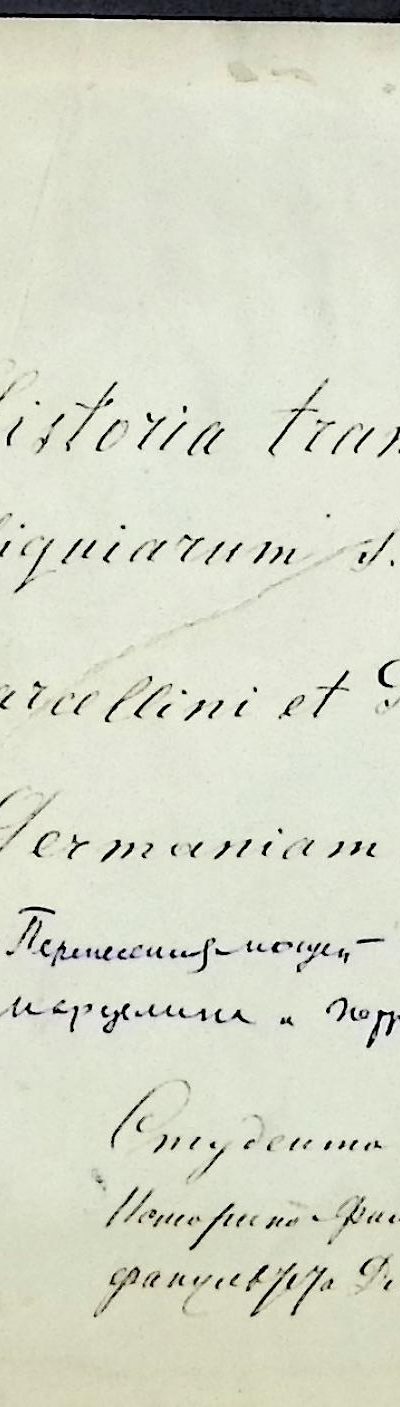 Historia tran
liquiarum s.
arcellini et P
Germaniam
Перенесения мощей
Марцелина и Петр
Студента
Историко-Фил
факультета